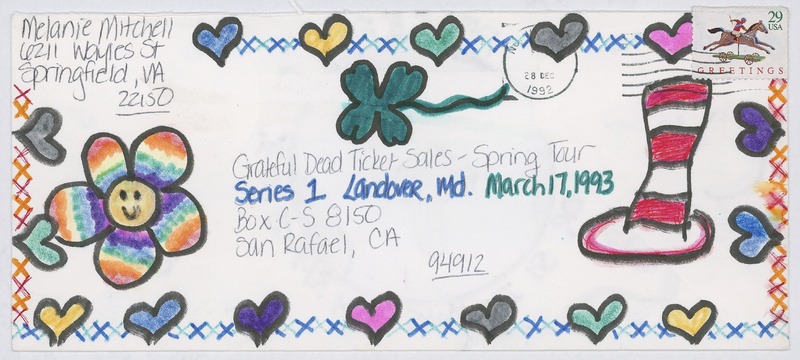 Melanie Mitchell
6211 Wayles St
Springfield, VA
22150
28 DEC
1992
29
USA
GREETINGS
Grateful Dead Ticket Sales - Spring Tour
Series 1 Landover, Md. March 17, 1993
Box C-S 8150
San Rafael, CA
94912